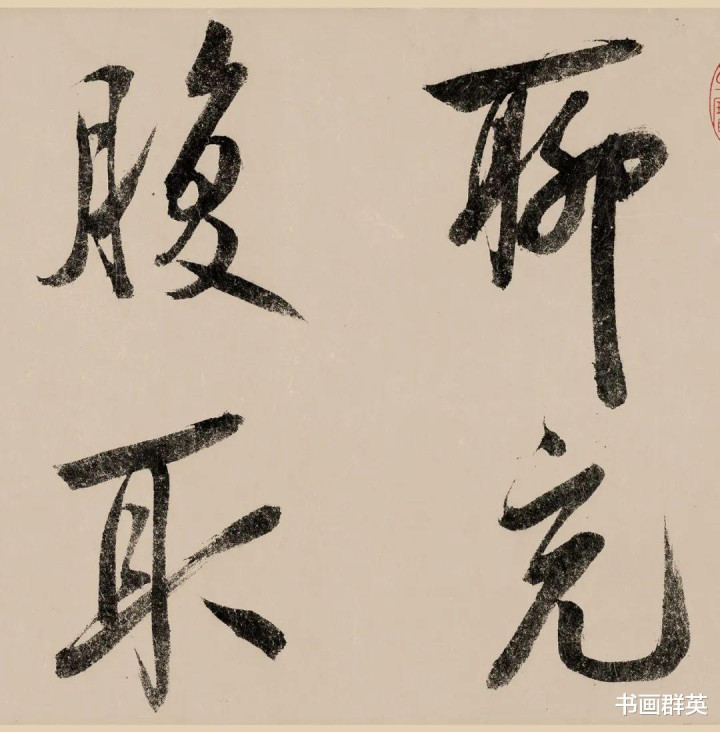 聊充
腹取
书画群英